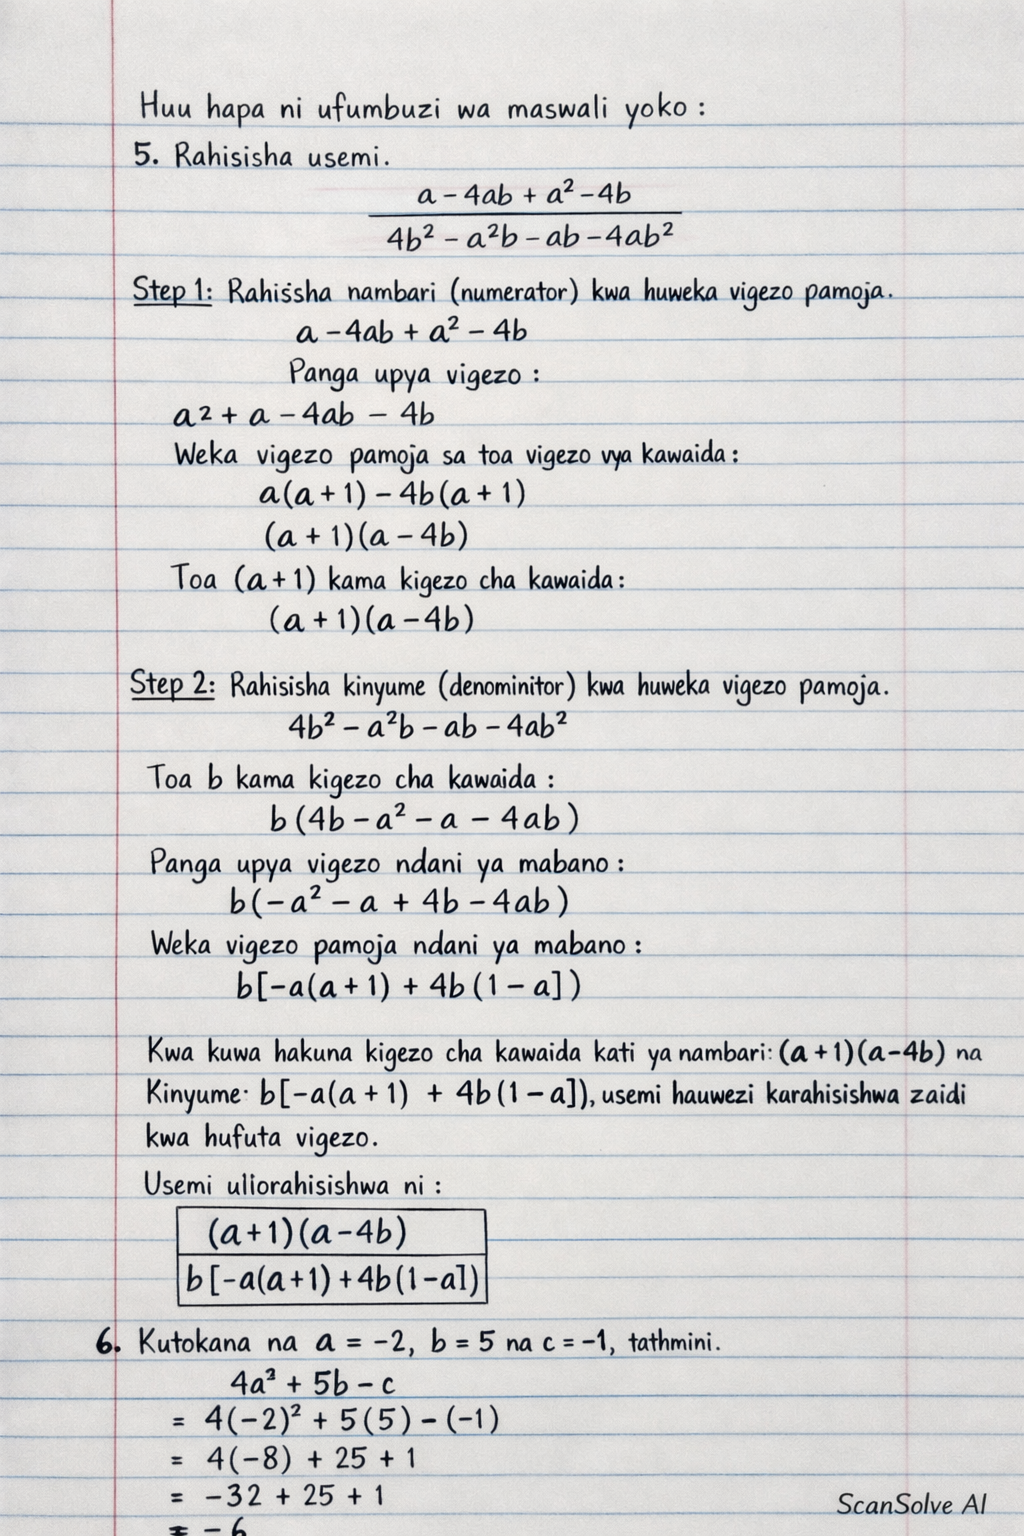 Huu hapa ni ufumbuzi wa maswali yoko :
5. Rahisisha usemi.
a - 4ab + a² - 4b
4b² - a²b - ab - 4ab²
Step 1: Rahisisha nambari (numerator) kwa huweka vigezo pamoja.
a - 4ab + a² - 4b
Panga upya vigezo :
a2 + a - 4ab - 4b
Weka vigezo pamoja sa toa vigezo vya kawaida :
a(a + 1) - 4b(a + 1)
(a + 1)(a - 4b)
Toa (a + 1) kama kigezo cha kawaida :
(a + 1)(a - 4b)
Step 2: Rahisisha kinyume (denominitor) kwa huweka vigezo pamoja.
4b² - a²b - ab - 4ab²
Toa b kama kigezo cha kawaida :
b(4b - a² - a - 4ab)
Panga upya vigezo ndani ya mabano :
b(-a² - a + 4b - 4ab)
Weka vigezo pamoja ndani ya mabano :
b[-a(a + 1) + 4b(1 - a])
Kwa kuwa hakuna kigezo cha kawaida kati ya nambari: (a + 1)(a-4b) na
Kinyume· b[-a(a + 1) + 4b(1 - a]), usemi hauwezi karahisishwa zaidi
kwa hufuta vigezo.
Usemi uliorahisishwa ni :
(a+1)(a-4b)
b[-a(a+1) +4b(1-a])
6. Kutokana na a = -2, b = 5 na c = -1, tathmini.
4a³ + 5b - c
= 4(-2)² + 5(5) - (-1)
= 4(-8) + 25 + 1
= -32 + 25 + 1
= - 6
ScanSolve AI